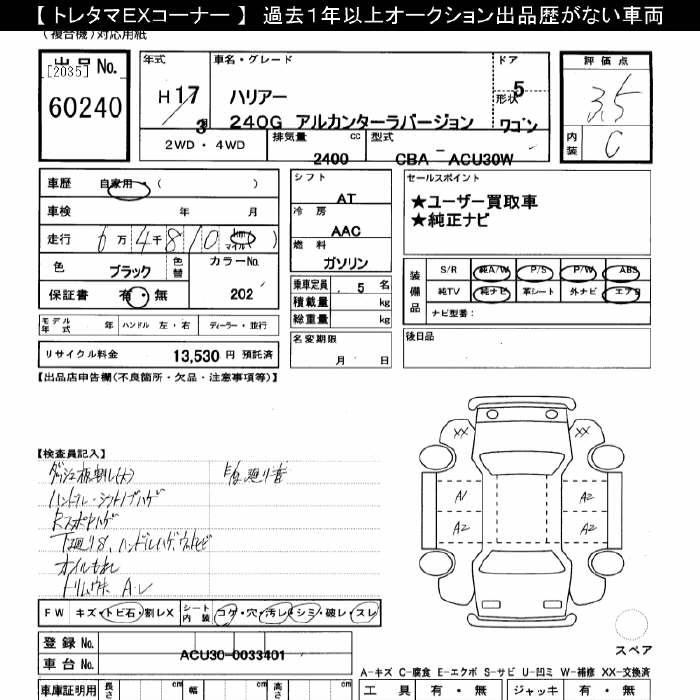 【 トレタマEXコーナー 】 過去1年以上オークション出品歴がない車両
(複合機)対応用紙
出品 No.
[2035]
60240
年式
H 17
3月
車名・グレード
ハリアー
240G アルカンターラバージョン
ドア
5
形状
ワゴン
評価点
3.5
内装 C
2WD・4WD
排気量 cc
2400
型式
CBA － ACU30W
車歴 自家用・( )
車検 年 月
走行 6万4千810 km マイル )
色 ブラック 色替
カラーNo.
202
保証書 有・無
シフト
AT
冷房
AAC
燃料
ガソリン
乗車定員 . 5 名
積載量 kg
総重量 kg
名変期限
月 日
セールスポイント
★ユーザー買取車
★純正ナビ
装備品
S/R 純A/W P/S P/W ABS
純TV 純ナビ 革シート 外ナビ エアB
ナビ型番：
後日品
モデル年式 年 ハンドル 左・右 ディーラー・並行
リサイクル料金 13,530 円 預託済
【出品店申告欄(不良箇所・欠品・注意事項等)】
【検査員記入】
ハンドル・シフトノブハゲ
XX XX
A1 A2
A2 A2
FW キズ・トビ石・割レX シート内装 コゲ・穴・汚レ・シミ・破レ・スレ
登録 No.
車台 No.
ACU30-0033401
スペア
A-キズ C-腐食 E-エクボ S-サビ U-凹ミ W-補修 XX-交換済
車庫証明用 長さ cm 幅 cm 高さ cm
工具 有・無 ジャッキ 有・無